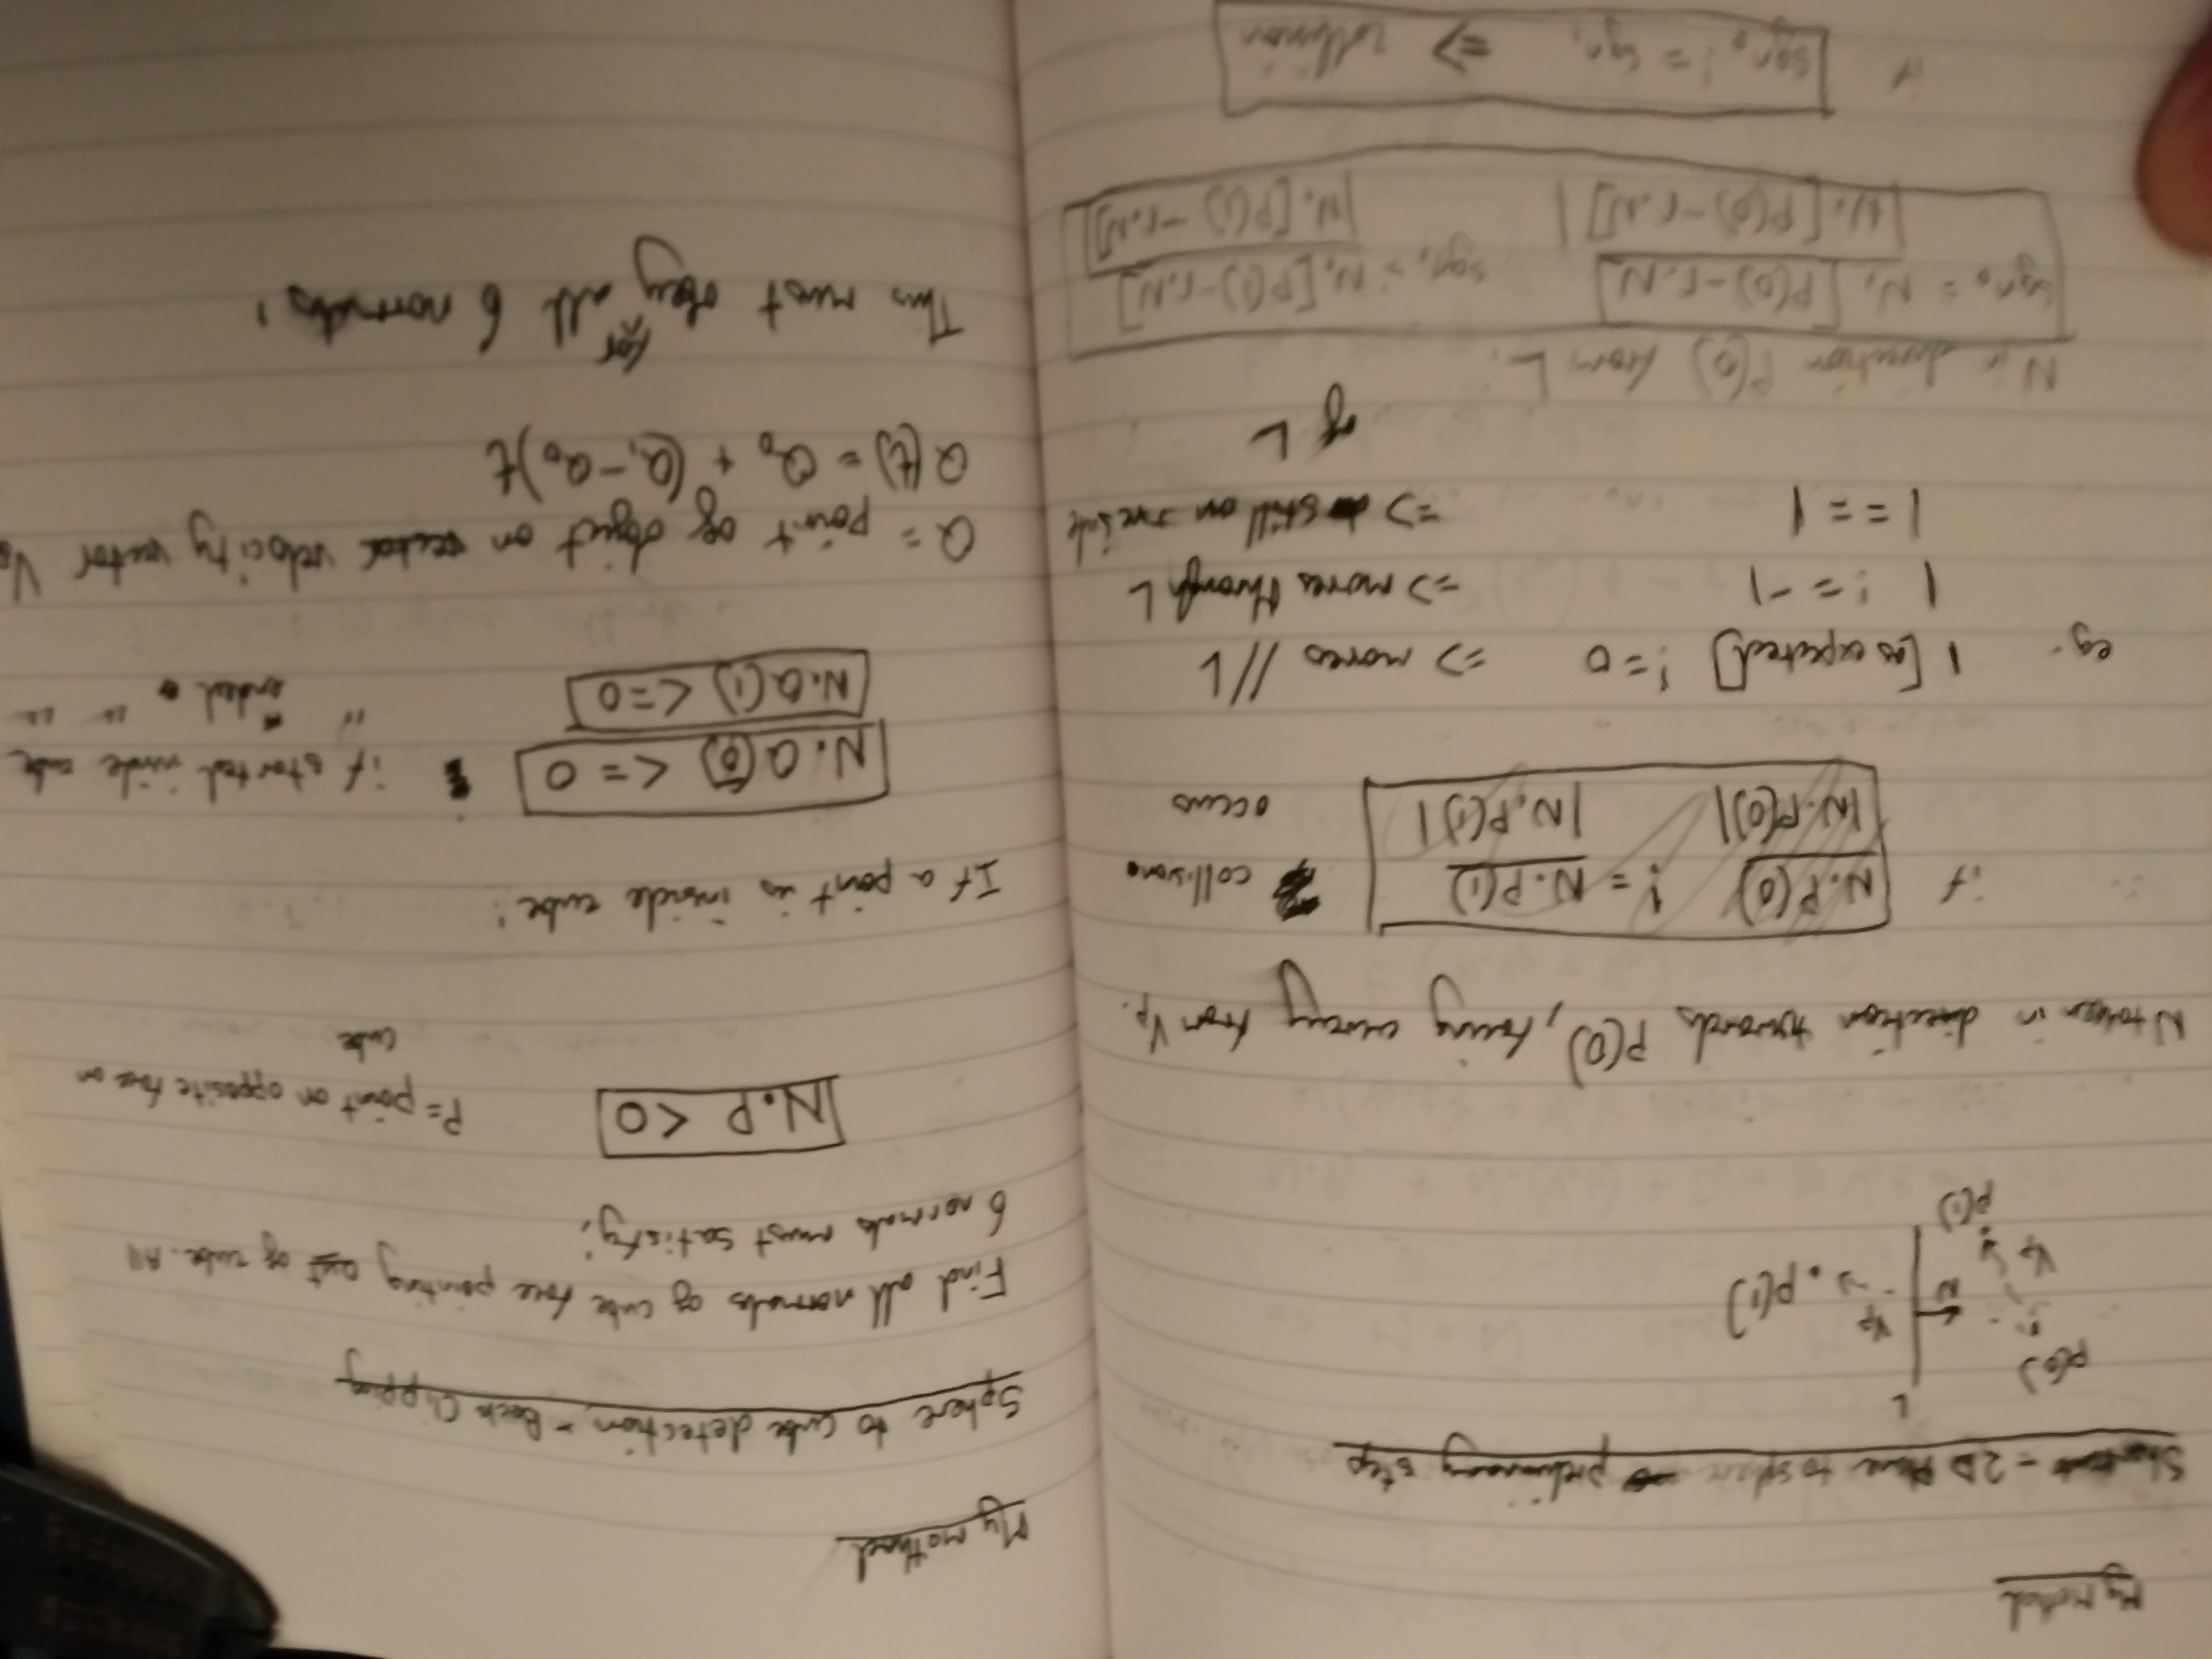 My Method
- 2D Plane to sphere preliminary step
L
P(0)
N
Vp
. P(1)
Vp
P(1)
N taken in direction towards P(0), facing away from Vp.
if N.P(0) != N.P(1) collision
|N.P(0)| |N.P(1)| occurs
eg. 1 [as expected] != 0 => moves // L
1 != -1 => moves through L
1 == 1 => still on side
of L
N in direction P(0) from L.
sgn₀ = N.[P(0)-r.N] sgn₁ = N.[P(1)-r.N]
|N.[P(0)-r.N]| |N.[P(1)-r.N]|
if sgn₀ != sgn₁ => collision
My mothod
Sphere to cube detection - Back Clipping
Find all normals of cube face pointing out of cube. All
6 normals must satisfy;
N.P <0 P= point on opposite face on
cube
If a point is inside cube:
N.Q(0) <= 0 if started inside cube
N.Q(1) <=0 " ended " "
Q = point of object on velocity vector
Q(t) = Q₀ + (Q₁-Q₀)t
This must obey for all 6 normals.